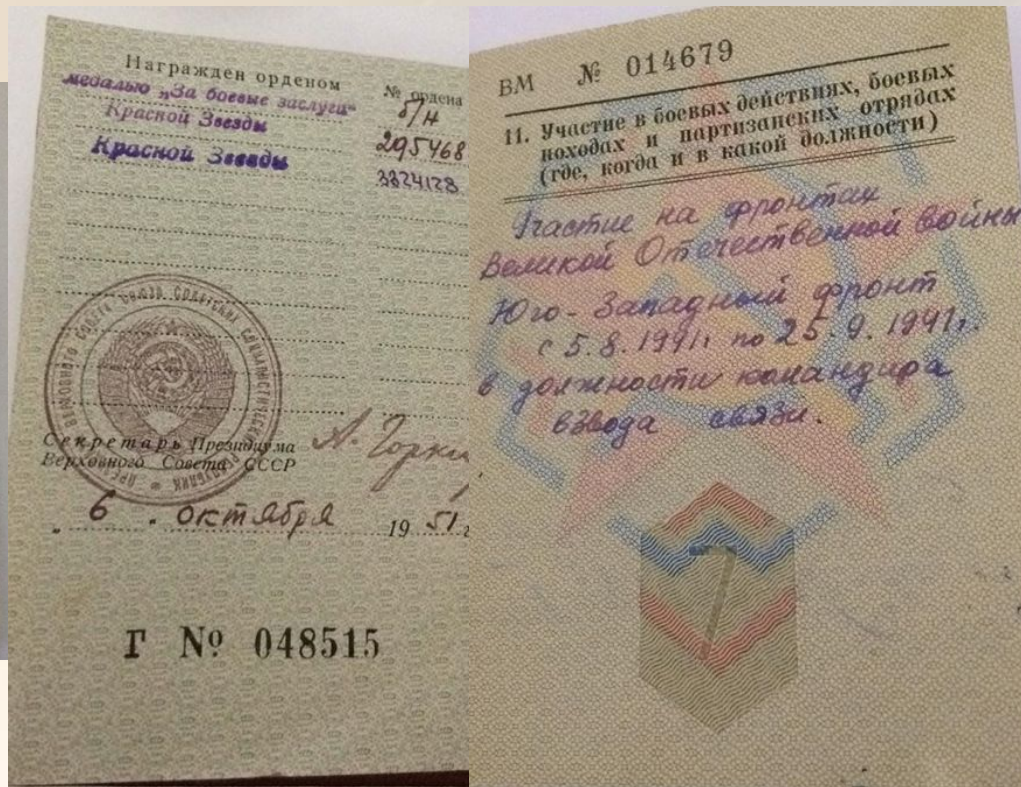 Награжден орденом
№ ордена
медалью „За боевые заслуги“
б/н
Красной Звезды
295468
Красной Звезды
3324128
Секретарь Президиума
Верховного Совета СССР
А. Горкин
„ 6 . октября 1951 г
Г № 048515
ВМ № 014679
11. Участие в боевых действиях, боевых
походах и партизанских отрядах
(где, когда и в какой должности)
Участие на фронтах
Великой Отечественной войны
Юго-Западный фронт
с 5.8.1941г. по 25.9.1941г.
в должности командира
взвода связи.
7